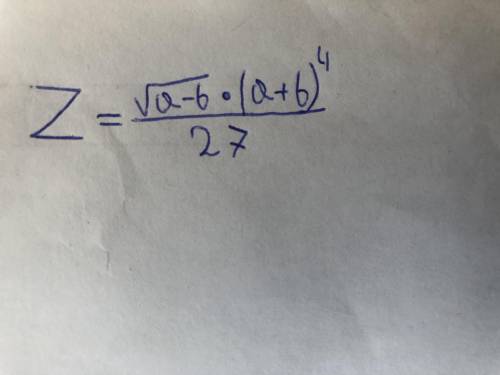 Z = √a-b · (a+b)⁴
27